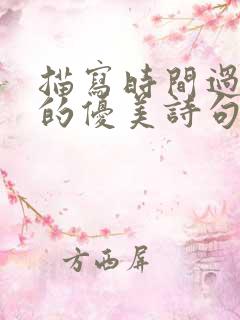 描寫時間過
的優美詩句
方西屏